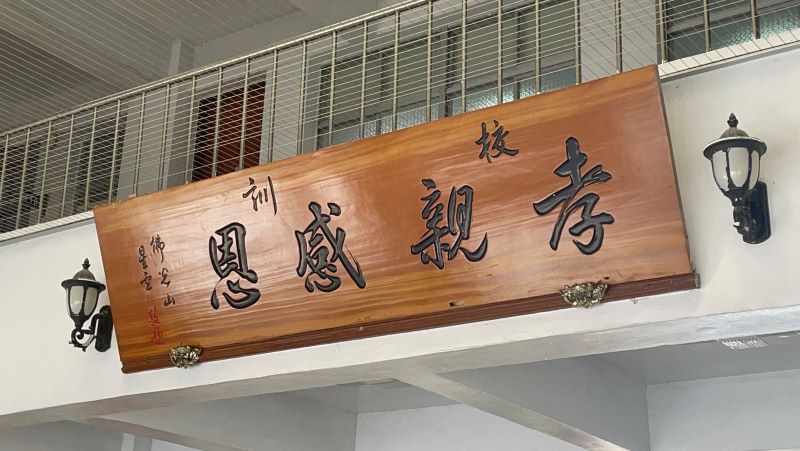 校訓
孝親感恩
佛光山
星雲
敬題